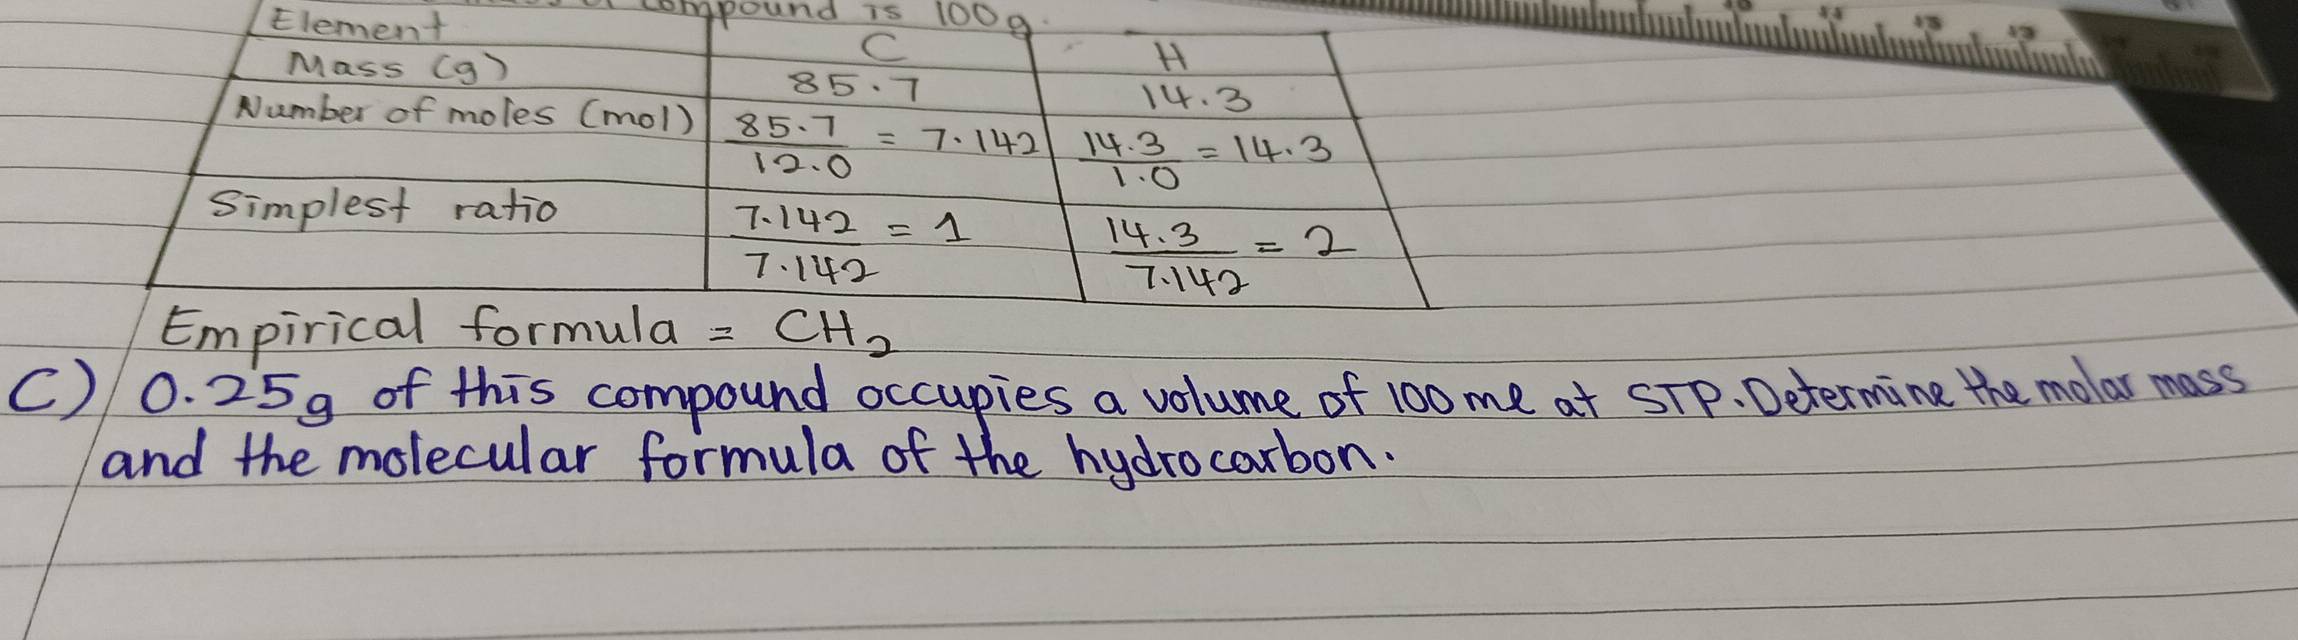 compound is 100g.
Element C H
Mass (g) 85.7 14.3
Number of moles (mol) 85.7/12.0 = 7.142 14.3/1.0 = 14.3
Simplest ratio 7.142/7.142 = 1 14.3/7.142 = 2
Empirical formula = CH₂
C) 0.25g of this compound occupies a volume of 100ml at STP. Determine the molar mass
and the molecular formula of the hydrocarbon.